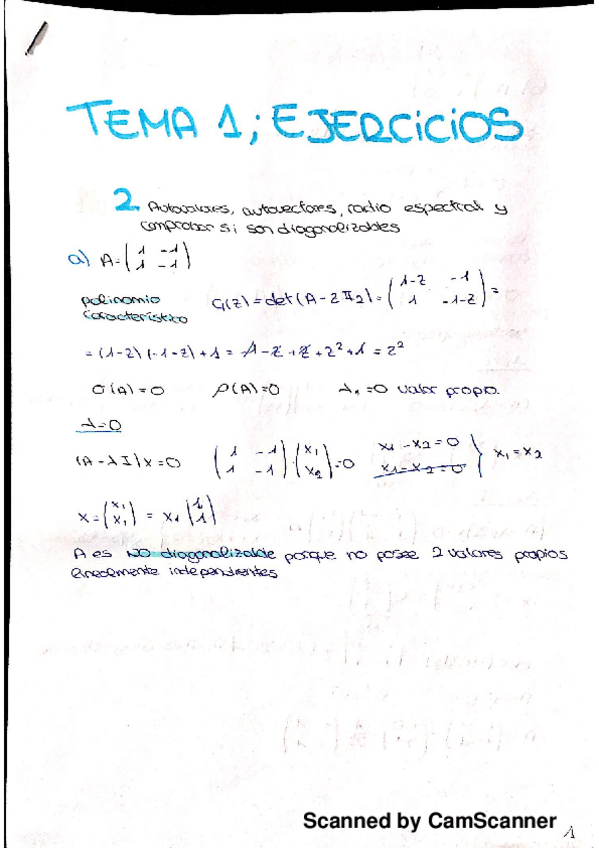 TEMA 1; EJERCICIOS
2. Autovalores, autovectores, radio espectral y
comprobar si son diagonalizables
a) A = ( 1 -1 )
( 1 -1 )
polinomio
característico
G(z) = det(A - zI₂) = ( 1-z -1 ) =
( 1 -1-z )
= (1-z) (-1-z) + 1 = -1 - z + z + z² + 1 = z²
σ(A) = 0 ρ(A) = 0 λ₁ = 0 valor propio.
λ = 0
(A - λI)x = 0 ( 1 -1 ) · ( x₁ ) = 0 x₁ - x₂ = 0 } x₁ = x₂
( 1 -1 ) ( x₂ ) x₁ - x₂ = 0
x = ( x₁ ) = x₁ ( 1 )
( x₁ ) ( 1 )
A es NO diagonalizable porque no posee 2 valores propios
linealmente independientes
Scanned by CamScanner
1